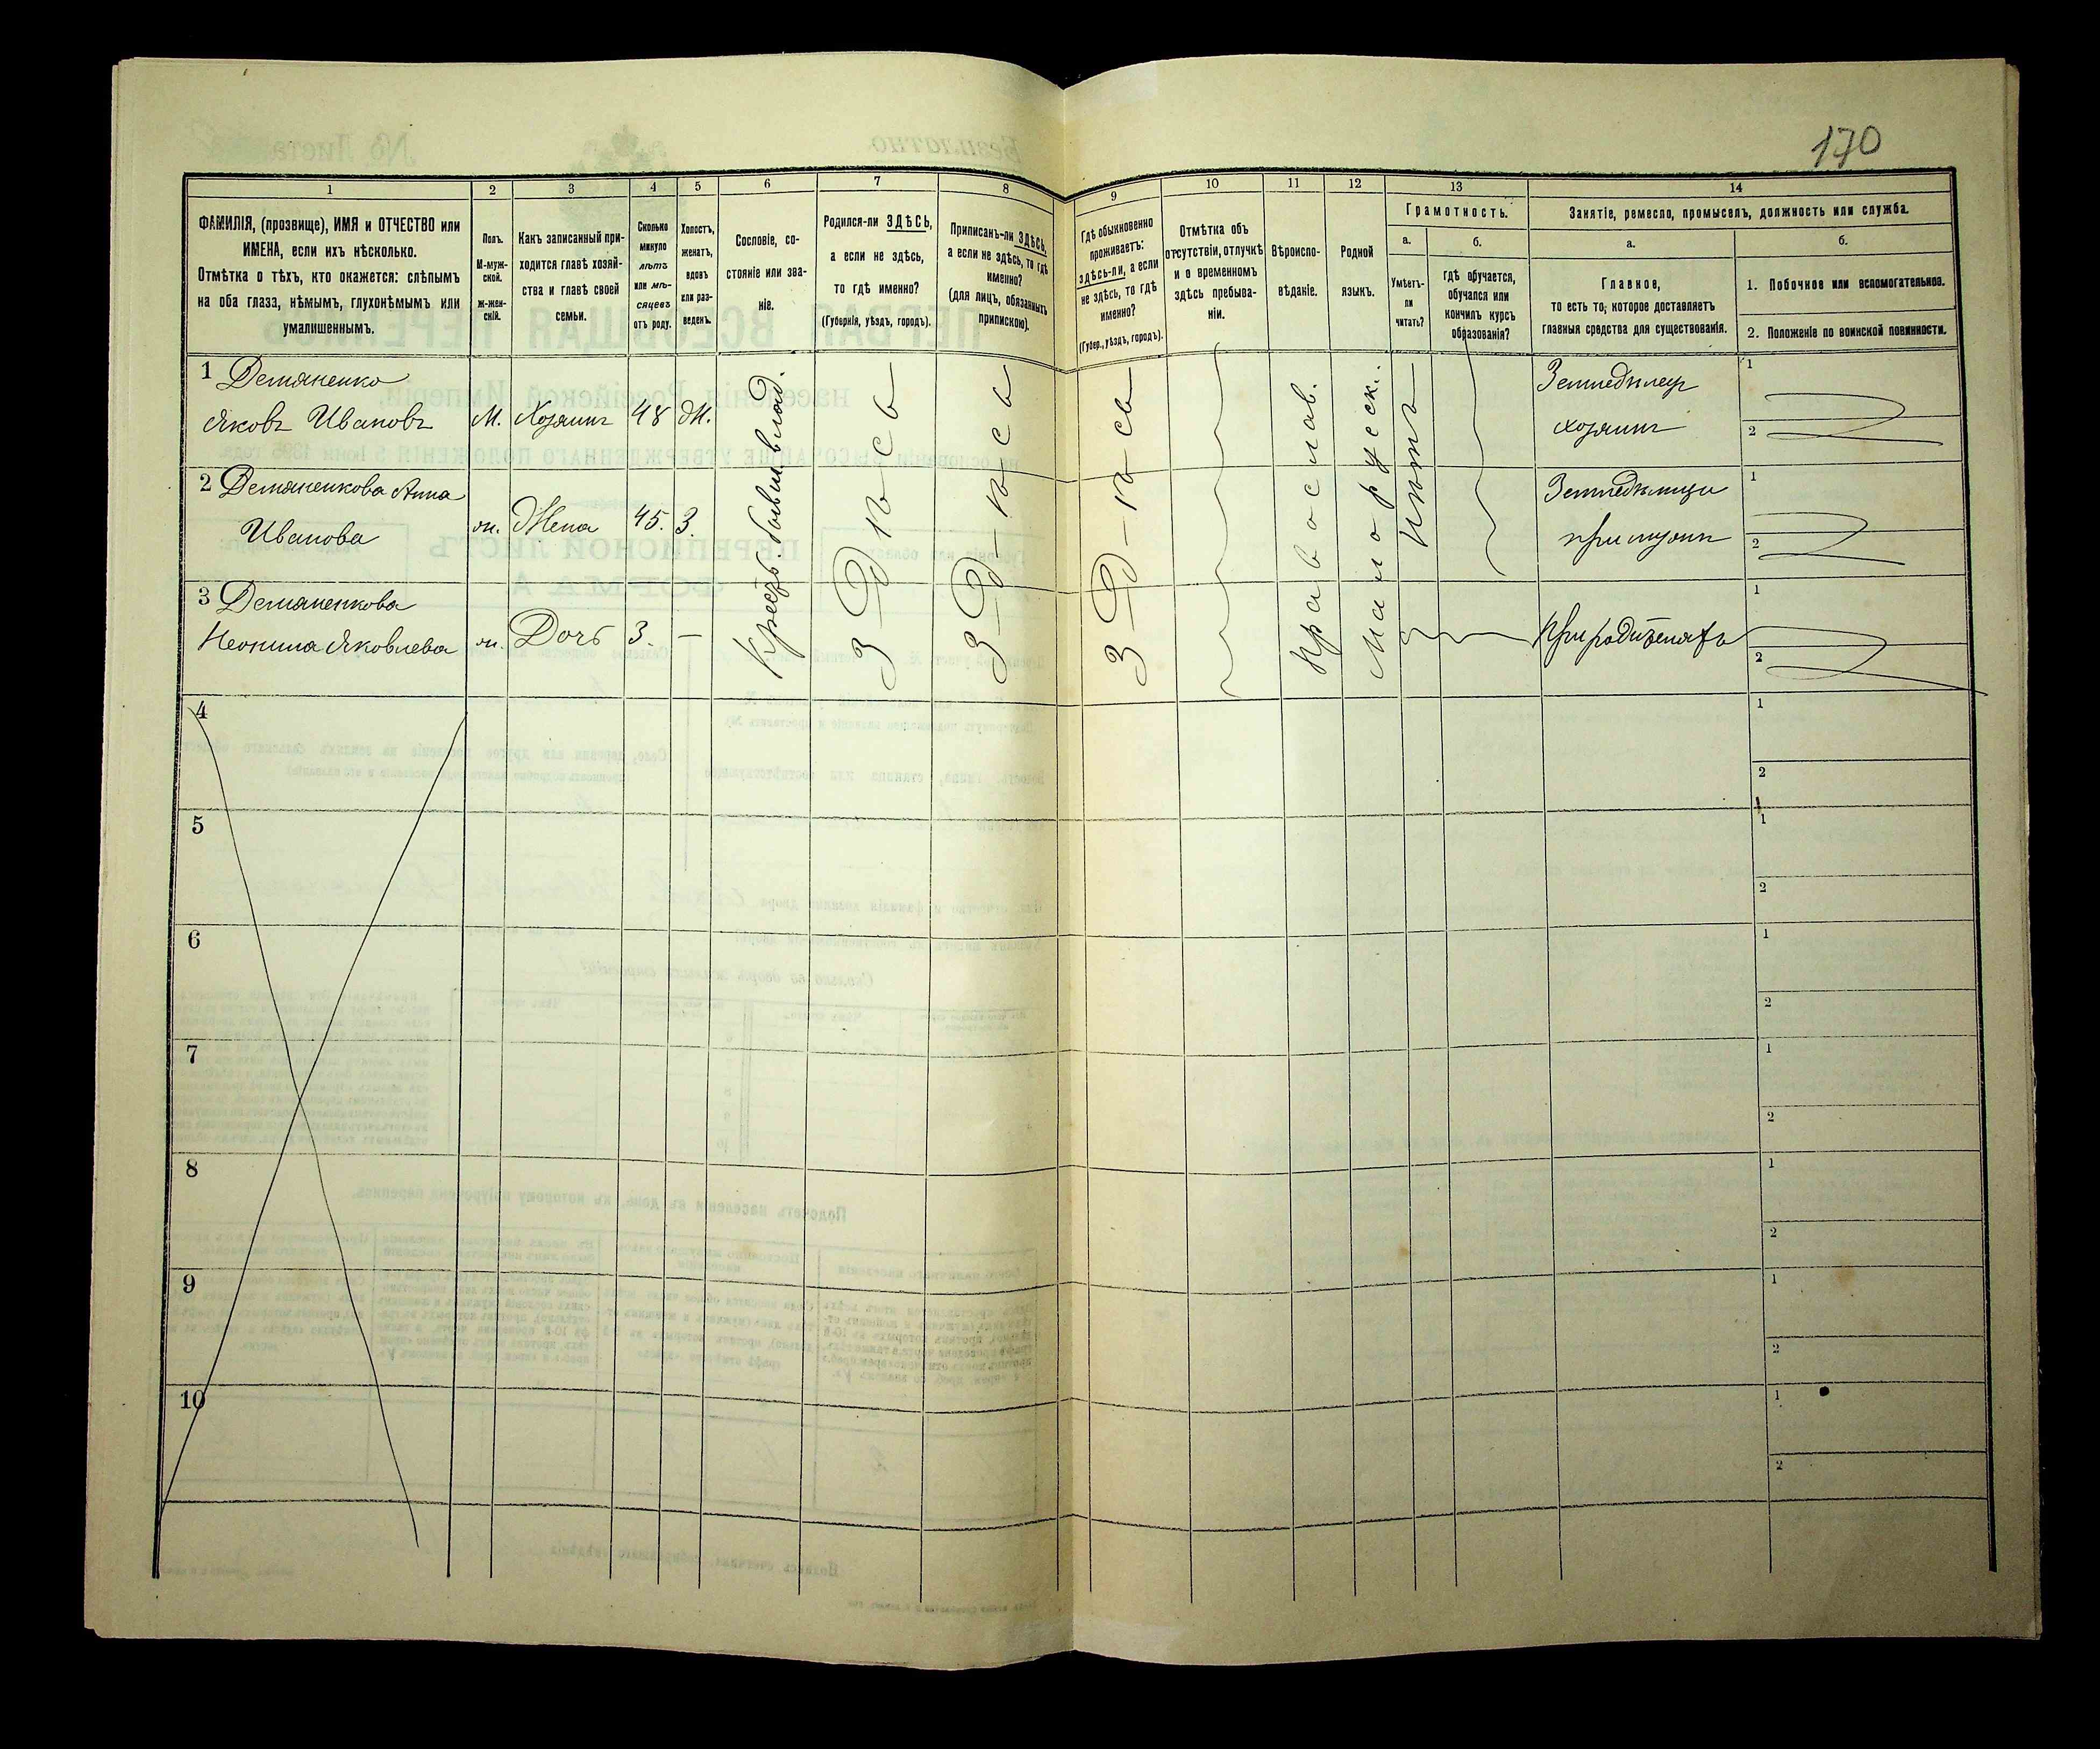 170
1
2
3
4
5
6
7
8
9
10
11
12
13
14
ФАМИЛІЯ, (прозвище), ИМЯ и ОТЧЕСТВО или
ИМЕНА, если ихъ нѣсколько.
Отмѣтка о тѣхъ, кто окажется: слѣпымъ
на оба глаза, нѣмымъ, глухонѣмымъ или
умалишеннымъ.
Полъ.
М-муж-
ской.
Ж-жен-
скій.
Какъ записанный при-
ходится главѣ хозяй-
ства и главѣ своей
семьи.
Сколько
минуло
лѣтъ
или мѣ-
сяцевъ
отъ роду.
Холостъ,
женатъ,
вдовъ
или раз-
веденъ.
Сословіе, со-
стояніе или зва-
ніе.
Родился-ли ЗДѢСЬ,
а если не здѣсь,
то гдѣ именно?
(Губернія, уѣздъ, городъ).
Приписанъ-ли ЗДѢСЬ,
а если не здѣсь, то гдѣ
именно?
(для лицъ, обязанныхъ
припискою).
Гдѣ обыкновенно
проживаетъ:
ЗДѢСЬ-ЛИ, а если
не здѣсь, то гдѣ
именно?
(Губер., уѣздъ, городъ).
Отмѣтка объ
отсутствіи, отлучкѣ
и о временномъ
здѣсь пребыва-
ніи.
Вѣроиспо-
вѣданіе.
Родной
языкъ.
Грамотность.
а.
Умѣетъ-
ли
читать?
б.
гдѣ обучается,
обучался или
кончилъ курсъ
образованія?
Занятіе, ремесло, промыселъ, должность или служба.
а.
Главное,
то есть то, которое доставляетъ
главныя средства для существованія.
б.
1. Побочное или вспомогательное.
2. Положеніе по воинской повинности.
1 Демяненко
Яковъ Ивановъ
М.
Хозяинъ
48
Ж.
Земледѣлецъ
хозяинъ
1
2
2 Демяненкова Анна
Иванова
ж.
Жена
45.
З.
Земледѣлица
при мужѣ
1
2
3 Демяненкова
Яковлева
ж.
Дочь
3.
—
При родителяхъ
1
2
Крестъ. бывш. влад.
Здѣсь
Здѣсь
Здѣсь
Православ.
Малорусск.
Нѣтъ
4
1
2
5
1
2
6
1
2
7
1
2
8
1
2
9
1
2
10
1
2